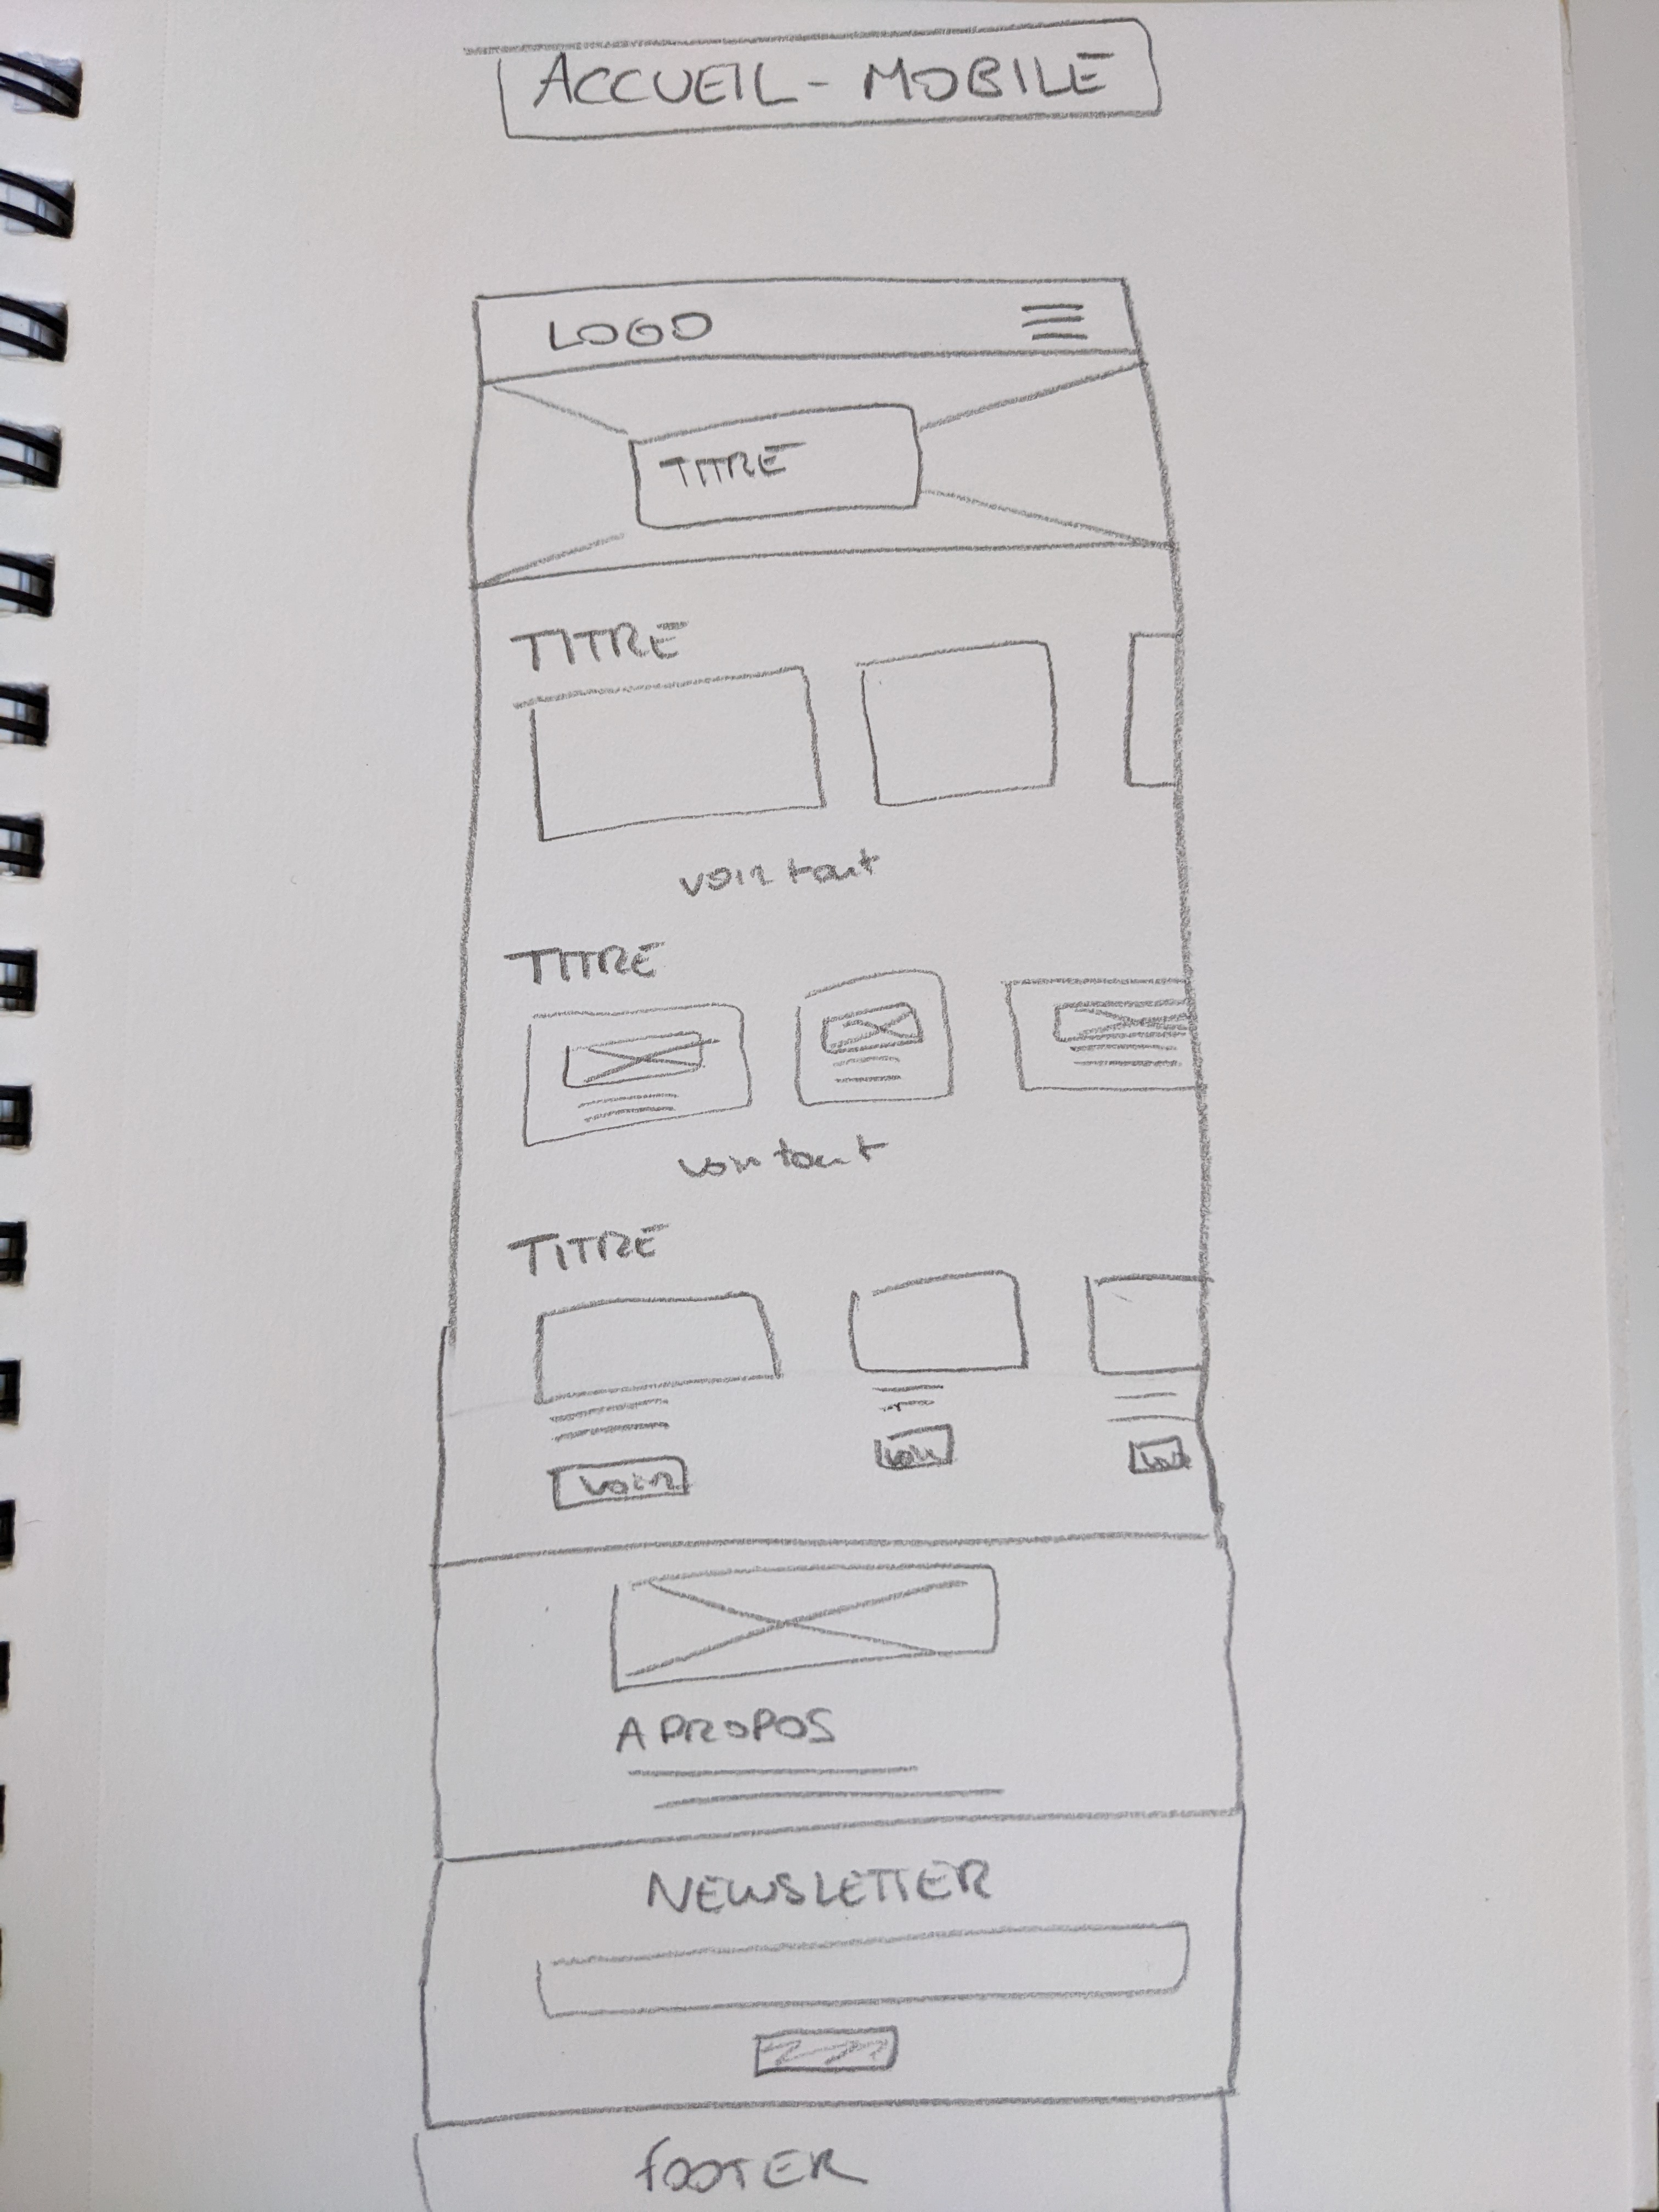 ACCUEIL - MOBILE
LOGO
TITRE
TITRE
voir tout
TITRE
voir tout
TITRE
voir voir voir
A PROPOS
NEWSLETTER
FOOTER